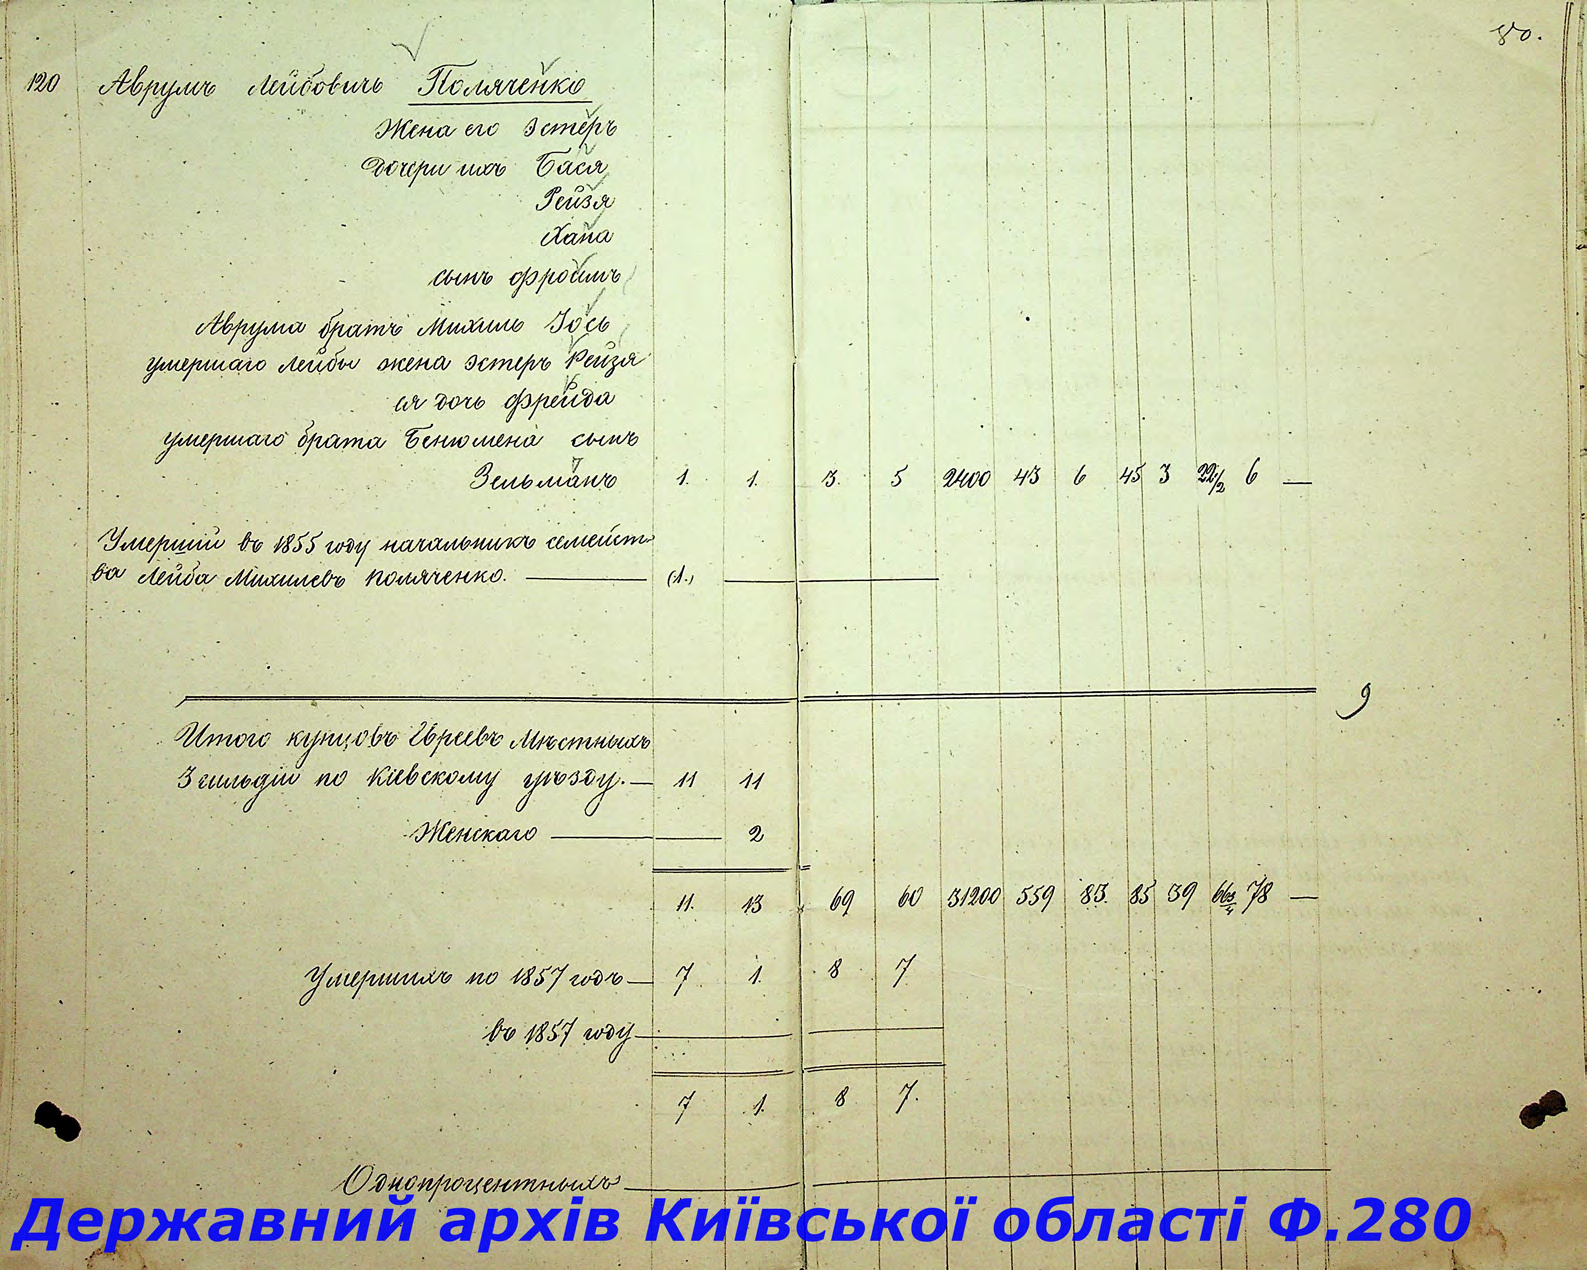 80.
120 Аврумъ Лейбовичъ Поляченко
Жена его Эстеръ
Дочери ихъ Бася
Рейзя
Хана
сынъ Фроимъ
Аврума братъ Михиль Іось
умершаго Лейбы жена Эстеръ Рейзя
ея дочь Фрейда
умершаго брата Бенюмена сынъ
Зельманъ 1. 1. 3. 5 2400 43 6 45 3 22 1/2 6 —
Умершій въ 1855 году начальникъ семейст-
ва Лейба Михилевъ Поляченко. — (1.) —
9
Итого купцовъ Евреевъ Мѣстныхъ
3 гильдіи по Кіевскому уѣзду. — 11 11
Женскаго — 2
11. 13 69 60 31200 559 83. 85 39 66 3/4 78 —
Умершихъ по 1857 годъ — 7 1. 8 7
въ 1857 году —
7 1. 8 7.
Однопроцентныхъ —
Державний архів Київської області Ф.280